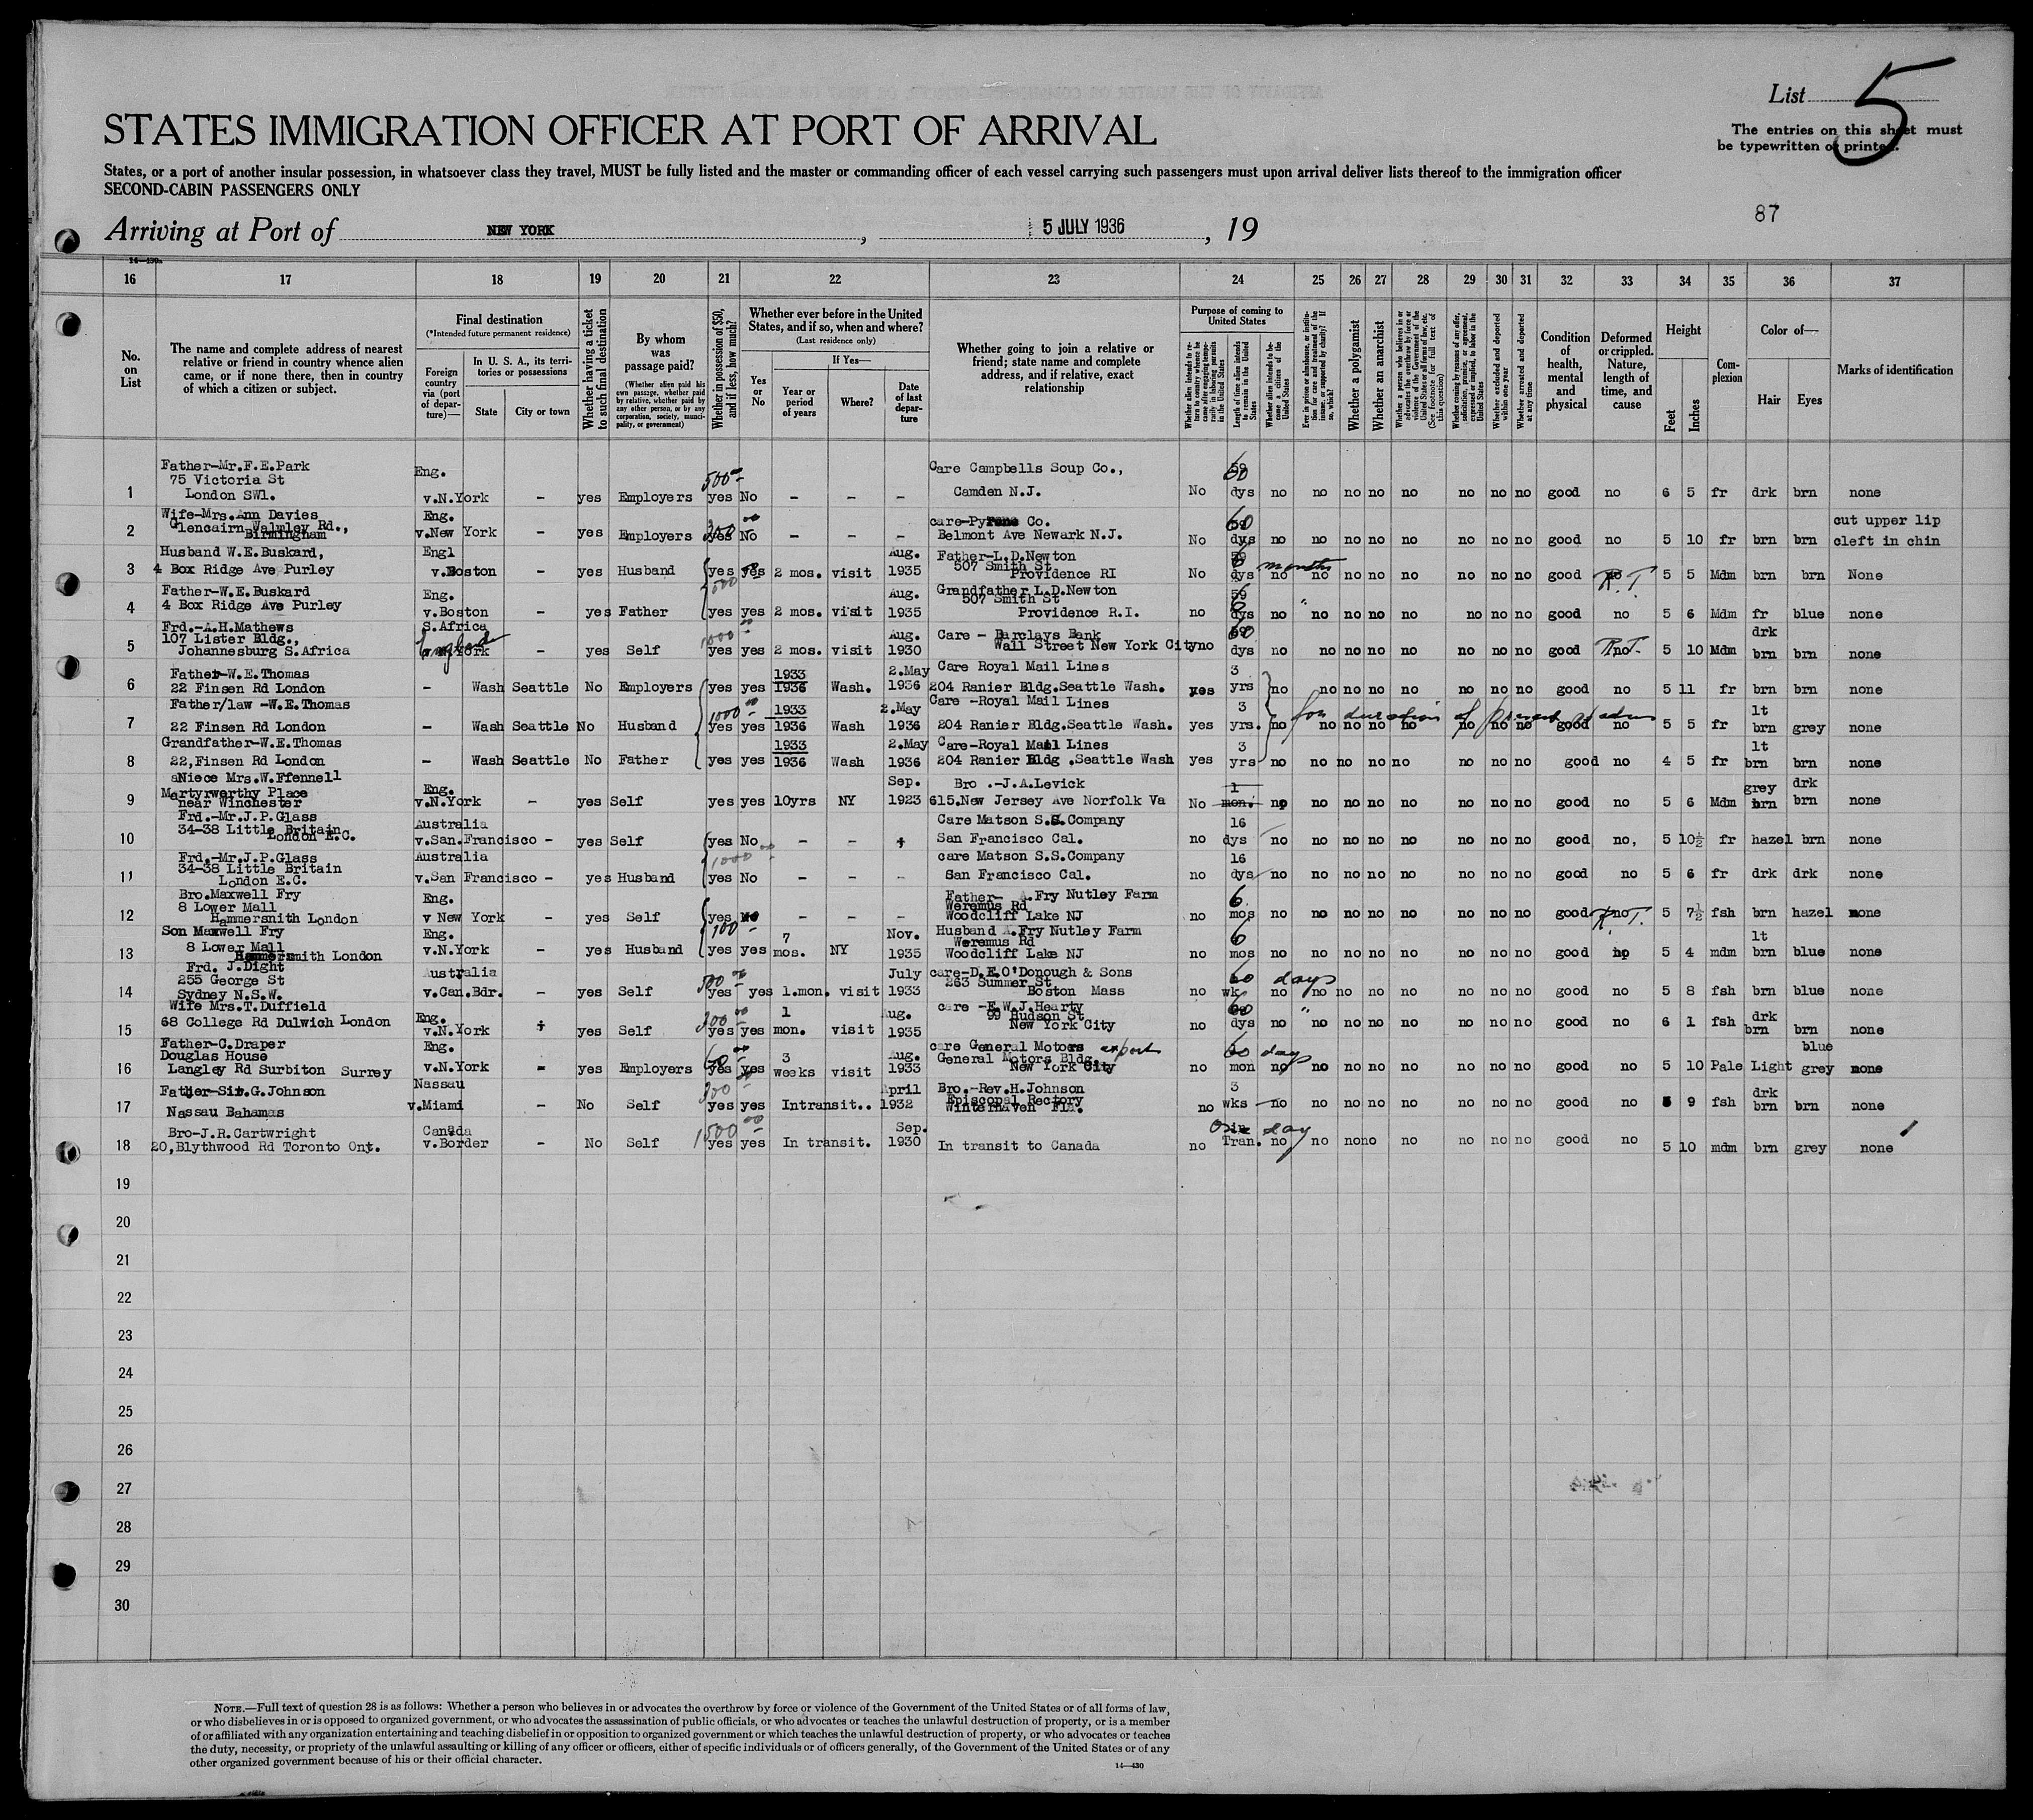 List 5
The entries on this sheet must
be typewritten or printed.
STATES IMMIGRATION OFFICER AT PORT OF ARRIVAL
States, or a port of another insular possession, in whatsoever class they travel, MUST be fully listed and the master or commanding officer of each vessel carrying such passengers must upon arrival deliver lists thereof to the immigration officer
SECOND-CABIN PASSENGERS ONLY
87
Arriving at Port of NEW YORK, 5 JULY 1936, 19
16 17 18 19 20 21 22 23 24 25 26 27 28 29 30 31 32 33 34 35 36 37
No. on List
The name and complete address of nearest relative or friend in country whence alien came, or if none there, then in country of which a citizen or subject.
Final destination
(*Intended future permanent residence)
Foreign country via (port of departure)—
In U. S. A., its territories or possessions
State
City or town
Whether having a ticket to such final destination
By whom was passage paid?
(Whether alien paid his own passage, whether paid by relative, whether paid by any other person, or by any corporation, society, municipality, or government)
Whether in possession of $50, and if less, how much?
Whether ever before in the United States, and if so, when and where?
(Last residence only)
Yes or No
If Yes—
Year or period of years
Where?
Date of last departure
Whether going to join a relative or friend; state name and complete address, and if relative, exact relationship
Purpose of coming to United States
Length of time alien intends to remain in the United States
Whether alien intends to become a citizen of the United States
Whether a polygamist
Whether an anarchist
Whether excluded and deported within one year
Whether arrested and deported at any time
Condition of health, mental and physical
Deformed or crippled. Nature, length of time, and cause
Height
Feet
Inches
Complexion
Color of—
Hair
Eyes
Marks of identification
1 Father-Mr.F.E.Park
75 Victoria St
London SW1. Eng. v.N.York - yes Employers 500 yes No - - - Care Campbells Soup Co.,
Camden N.J. No 60 dys no no no no no no no no good no 6 5 fr drk brn none
2 Wife-Mrs.Ann Davies
Glencairn Walmley Rd.,
Birmingham Eng. v.New York - yes Employers yes No - - - care-Pyrene Co.
Belmont Ave Newark N.J. No 60 dys no no no no no no no no good no 5 10 fr brn brn cut upper lip
cleft in chin
3 Husband W.E.Buskard,
4 Box Ridge Ave Purley Engl v.Boston - yes Husband yes yes 2 mos. visit Aug. 1935 Father-L.D.Newton
507 Smith St
Providence RI No 6 months no no no no no no no no good R.T. 5 5 Mdm brn brn None
4 Father-W.E.Buskard
4 Box Ridge Ave Purley Eng. v.Boston - yes Father 500 yes yes 2 mos. visit Aug. 1935 Grandfather L.D.Newton
507 Smith St
Providence R.I. no 6 " no no no no no no no no good no 5 6 Mdm fr blue none
5 Frd.-A.H.Mathews
107 Lister Bldg.,
Johannesburg S.Africa S.Africa England v.N.York - yes Self 1000 yes yes 2 mos. visit Aug. 1930 Care - Barclays Bank
Wall Street New York City no 60 dys no no no no no no no no good R.T. 5 10 Mdm drk brn brn none
6 Father-W.E.Thomas
22 Finsen Rd London - Wash Seattle No Employers yes yes 1933 1936 Wash. 2.May 1936 Care Royal Mail Lines
204 Ranier Bldg.Seattle Wash. yes 3 yrs no no no no no no no no good no 5 11 fr brn brn none
7 Father/law -W.E.Thomas
22 Finsen Rd London - Wash Seattle No Husband 1000 yes yes 1933 1936 Wash 2.May 1936 Care -Royal Mail Lines
204 Ranier Bldg.Seattle Wash. yes 3 yrs. for duration of present status no no no no no no no no good no 5 5 fr lt brn grey none
8 Grandfather-W.E.Thomas
22,Finsen Rd London - Wash Seattle No Father yes yes 1933 1936 Wash 2.May 1936 Care-Royal Mail Lines
204 Ranier Bldg .Seattle Wash yes 3 yrs no no no no no no no no good no 4 5 fr lt brn brn none
9 aNiece Mrs.W.Ffennell
Martyrworthy Place
near Winchester Eng. v.N.York - yes Self yes yes 10yrs NY Sep. 1923 Bro .-J.A.Levick
615.New Jersey Ave Norfolk Va No 1 mon. no no no no no no no no good no 5 6 Mdm grey brn drk brn none
10 Frd.-Mr.J.P.Glass
34-38 Little Britain
London E.C. Australia v.San.Francisco - yes Self yes No - - Care Matson S.S.Company
San Francisco Cal. no 16 dys no no no no no no no no good no, 5 10½ fr hazel brn none
11 Frd.-Mr.J.P.Glass
34-38 Little Britain
London E.C. Australia v.San Francisco - yes Husband 1000 yes No - - - care Matson S.S.Company
San Francisco Cal. no 16 dys no no no no no no no no good no 5 6 fr drk drk none
12 Bro.Maxwell Fry
8 Lower Mall
Hammersmith London Eng. v New York - yes Self yes no - - - Father- A.Fry Nutley Farm
Weremus Rd
Woodcliff Lake NJ no 6 mos no no no no no no no no good R.T. 5 7½ fsh brn hazel none
13 Son Maxwell Fry
8 Lower Mall
Hammersmith London Eng. v.N.York - yes Husband 100 yes yes 7 mos. NY Nov. 1935 Husband A.Fry Nutley Farm
Weremus Rd
Woodcliff Lake NJ no 6 mos no no no no no no no no good no 5 4 mdm lt brn blue none
14 Frd. J.Dight
255 George St
Sydney N.S.W. Australia v.Can.Bdr. - yes Self 500 yes yes 1.mon. visit July 1933 care-D.E.O'Donough & Sons
263 Summer St
Boston Mass no 60 days wk no no no no no no no no good no 5 8 fsh brn blue none
15 Wife Mrs.T.Duffield
68 College Rd Dulwich London Eng. v.N.York yes Self 300 yes yes 1 mon. visit Aug. 1935 care -E.W.J.Hearty
99 Hudson St
New York City no 60 " dys no no no no no no no no good no 6 1 fsh drk brn brn none
16 Father-C.Draper
Douglas House
Langley Rd Surbiton Surrey Eng. v.N.York - yes Employers 60 yes yes 3 weeks visit Aug. 1933 care General Motors export
General Motors Bldg.
New York City no 60 days mon no no no no no no no no good no 5 10 Pale Light blue grey none
17 Father-Sir.G.Johnson
Nassau Bahamas Nassau v.Miami - No Self 200 yes yes Intransit.. April 1932 Bro.-Rev.H.Johnson
Episcopal Rectory
Winterhaven Fla. no 3 wks no no no no no no no no good no 5 9 fsh drk brn brn none
18 Bro-J.R.Cartwright
20,Blythwood Rd Toronto Ont. Canada v.Border - No Self 1500 yes yes In transit. Sep. 1930 In transit to Canada no One day Tran. no no no no no no no no good no 5 10 mdm brn grey none
19
20
21
22
23
24
25
26
27
28
29
30
NOTE.—Full text of question 28 is as follows: Whether a person who believes in or advocates the overthrow by force or violence of the Government of the United States or of all forms of law,
or who disbelieves in or is opposed to organized government, or who advocates the assassination of public officials, or who advocates or teaches the unlawful destruction of property, or is a member
of or affiliated with any organization entertaining and teaching disbelief in or opposition to organized government or which teaches the unlawful destruction of property, or who advocates or teaches
the duty, necessity, or propriety of the unlawful assaulting or killing of any officer or officers, either of specific individuals or of officers generally, of the Government of the United States or of any
other organized government because of his or their official character.
14—430